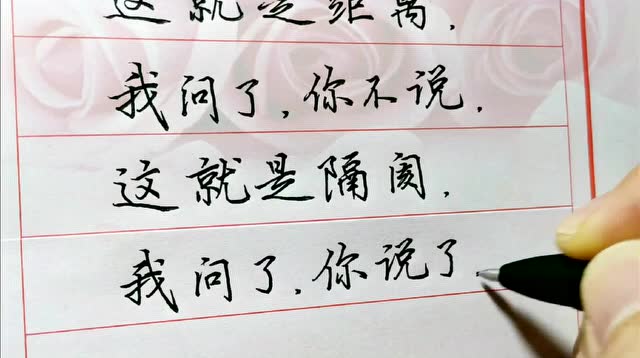 这就是距离，
我问了，你不说，
这就是隔阂，
我问了，你说了，